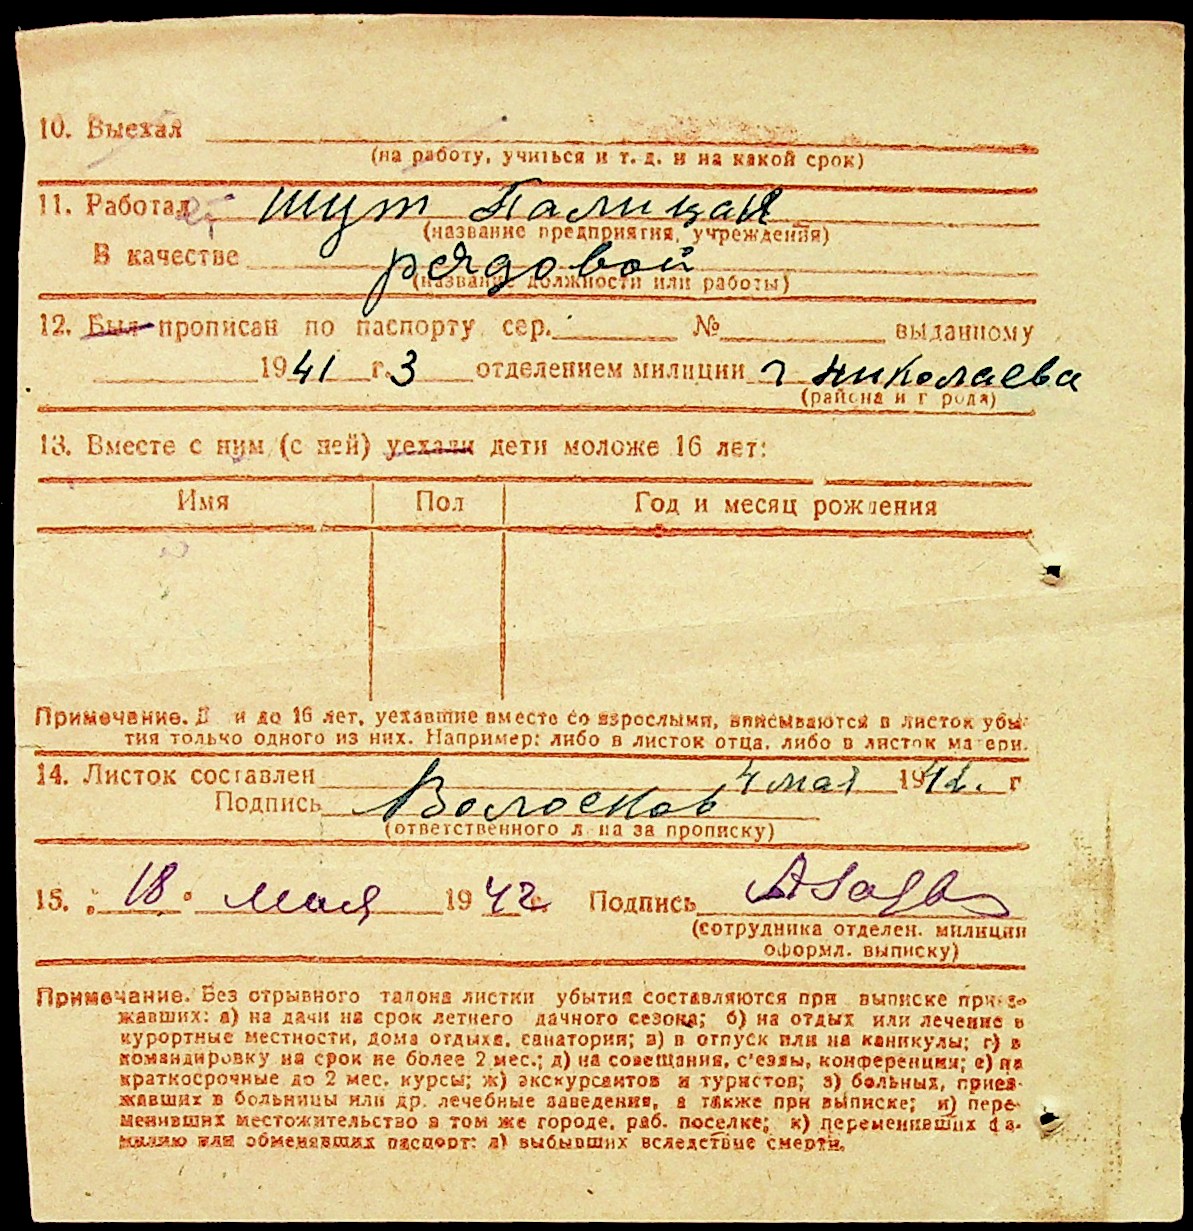 10. Выехал
(на работу, учиться и т. д. и на какой срок)
11. Работал шут Палицай
(название предприятия, учреждения)
В качестве рядовой
(название должности или работы)
12. Был прописан по паспорту сер. № выданному
1941 г. 3 отделением милиции г николаева
(района и г рода)
13. Вместе с ним (с ней) уехали дети моложе 16 лет:
Имя Пол Год и месяц рождения
Примечание. Д и до 16 лет, уехавшие вместе со взрослыми, вписываются в листок убы-
тия только одного из них. Например: либо в листок отца, либо в листок матери.
14. Листок составлен 4 мая 1942. г
Подпись Волосков
(ответственного л на за прописку)
15. " 18 " мая 1942 г. Подпись
(сотрудника отделен. милиции
оформл. выписку)
Примечание. Без отрывного талона листки убытия составляются при выписке приез-
жавших: а) на дачи на срок летнего дачного сезона; б) на отдых или лечение в
курортные местности, дома отдыха, санатории; в) в отпуск или на каникулы; г) в
командировку на срок не более 2 мес.; д) на совещания, с'езды, конференции; е) на
краткосрочные до 2 мес. курсы; ж) экскурсантов и туристов; з) больных, приез-
жавших в больницы или др. лечебные заведения, а также при выписке; и) пере-
менивших местожительство в том же городе, раб. поселке; к) переменивших фа-
милию или обменявших паспорт; л) выбывших вследствие смерти.